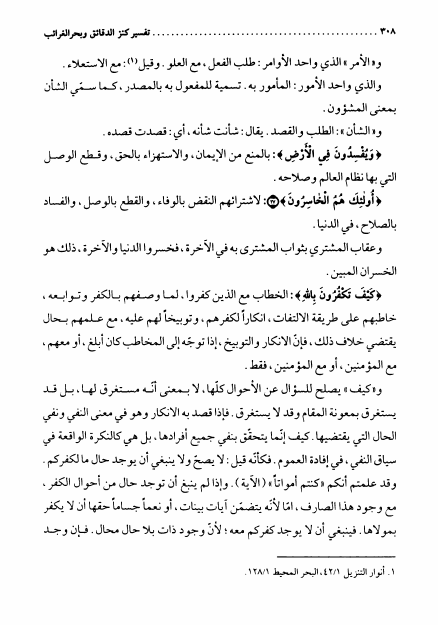 ٣٠٨ ........................................ تفسير كنز الدقائق وبحر الغرائب
و«الأمر» الذي واحد الأوامر: طلب الفعل، مع العلو. وقيل(١): مع الاستعلاء.
والذي واحد الأمور: المأمور به. تسمية للمفعول به بالمصدر، كما سمّي الشأن
بمعنى المشؤون.
و«الشأن»: الطلب والقصد. يقال: شأنت شأنه، أي: قصدت قصده.
﴿وَيُفْسِدُونَ فِي الْأَرْضِ﴾: بالمنع من الإيمان، والاستهزاء بالحق، وقطع الوصل
التي بها نظام العالم وصلاحه.
﴿أُولٰئِكَ هُمُ الْخَاسِرُونَ﴾(٢٧): لاشترائهم النقض بالوفاء، والقطع بالوصل، والفساد
بالصلاح، في الدنيا.
وعقاب المشتري بثواب المشترى به في الآخرة، فخسروا الدنيا والآخرة، ذلك هو
الخسران المبين.
﴿كَيْفَ تَكْفُرُونَ بِاللهِ﴾: الخطاب مع الذين كفروا، لما وصفهم بالكفر وتوابعه،
خاطبهم على طريقة الالتفات، انكاراً لكفرهم، وتوبيخاً لهم عليه، مع علمهم بحال
يقتضي خلاف ذلك، فإنّ الانكار والتوبيخ، إذا توجّه إلى المخاطب كان أبلغ، أو معهم،
مع المؤمنين، أو مع المؤمنين، فقط.
و«كيف» يصلح للسؤال عن الأحوال كلّها، لا بمعنى أنّه مستغرق لها، بل قد
يستغرق بمعونة المقام وقد لا يستغرق. فإذا قصد به الانكار وهو في معنى النفي ونفي
الحال التي يقتضيها. كيف إنّما يتحقّق بنفي جميع أفرادها، بل هي كالنكرة الواقعة في
سياق النفي، في إفادة العموم. فكأنّه قيل: لا يصحّ ولا ينبغي أن يوجد حال ما لكفركم.
وقد علمتم أنكم «كنتم أمواتاً» (الآية). وإذا لم ينبغ أن توجد حال من أحوال الكفر،
مع وجود هذا الصارف، امّا لأنّه يتضمّن آيات بينات، أو نعماً جساماً حقها أن لا يكفر
بمولاها. فينبغي أن لا يوجد كفركم معه؛ لأنّ وجود ذات بلا حال محال. فإن وجد
١. أنوار التنزيل ٤٢/١، البحر المحيط ١٢٨/١.